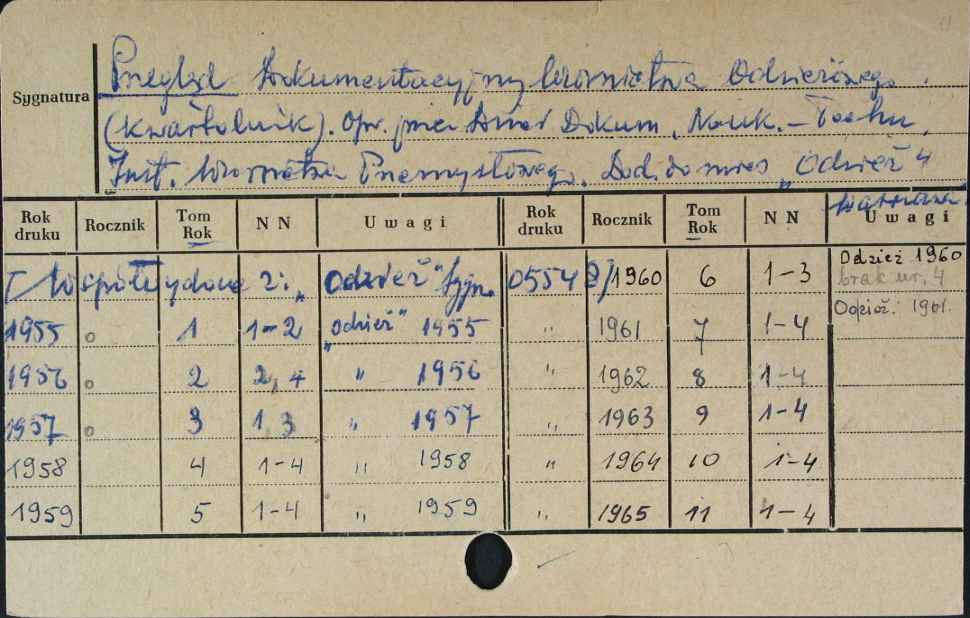 11
Sygnatura
Przegląd Dokumentacyjny Włókiennictwa Odzieżowego.
(Kwartalnik). Opr. przez Dokum. Nauk.-Techn.
Inst. Przemysłowego. Dod. do mies „Odzież"
Rok druku Rocznik Tom Rok N N Uwagi Rok druku Rocznik Tom Rok N N Uwagi
[Współwydane z: „Odzież" Sygn. 0554 2] 1960 6 1-3 Odzież 1960 brak nr. 4
1955 o 1 1-2 „Odzież" 1955 " 1961 7 1-4 Odzież: 1961.
1956 o 2 2, 4 " 1956 " 1962 8 1-4
1957 o 3 1, 3 " 1957 " 1963 9 1-4
1958 4 1-4 " 1958 " 1964 10 1-4
1959 5 1-4 " 1959 " 1965 11 1-4